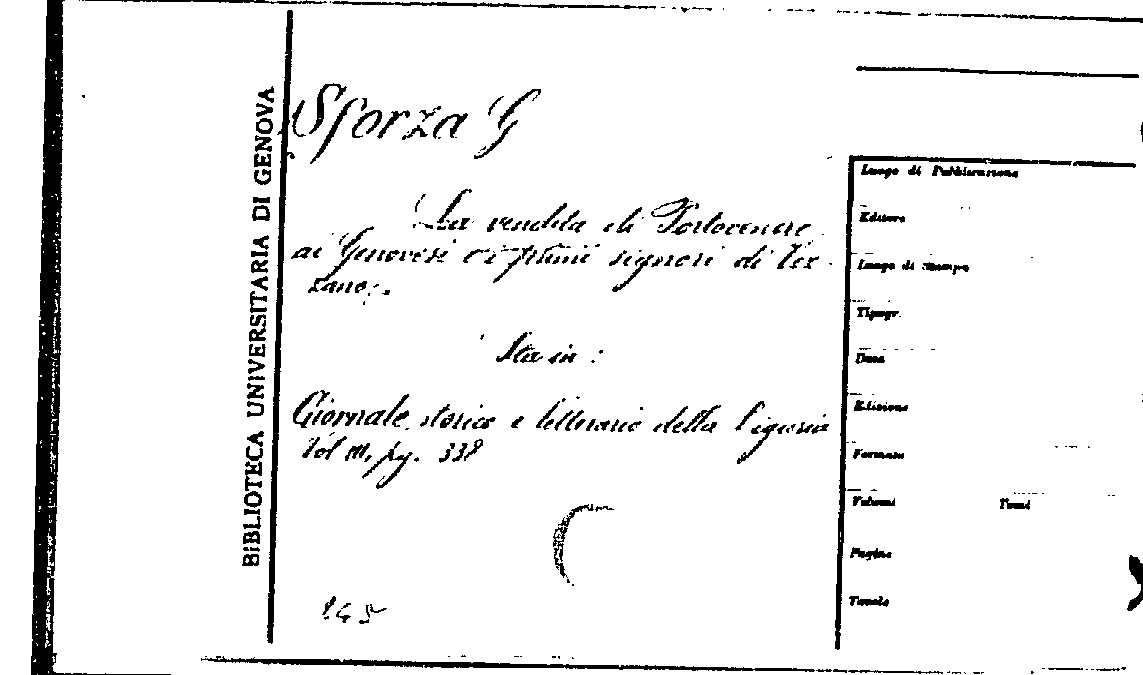 BIBLIOTECA UNIVERSITARIA DI GENOVA
Sforza G
La vendita di Portovenere
ai Genovesi e i primi signori di Vez
zano.
Sta in :
Giornale storico e letterario della Liguria
Vol III, pg. 338
145
Luogo di Pubblicazione
Editore
Luogo di Stampa
Tipogr.
Data
Edizione
Formato
Volumi Tomi
Pagine
Tavole